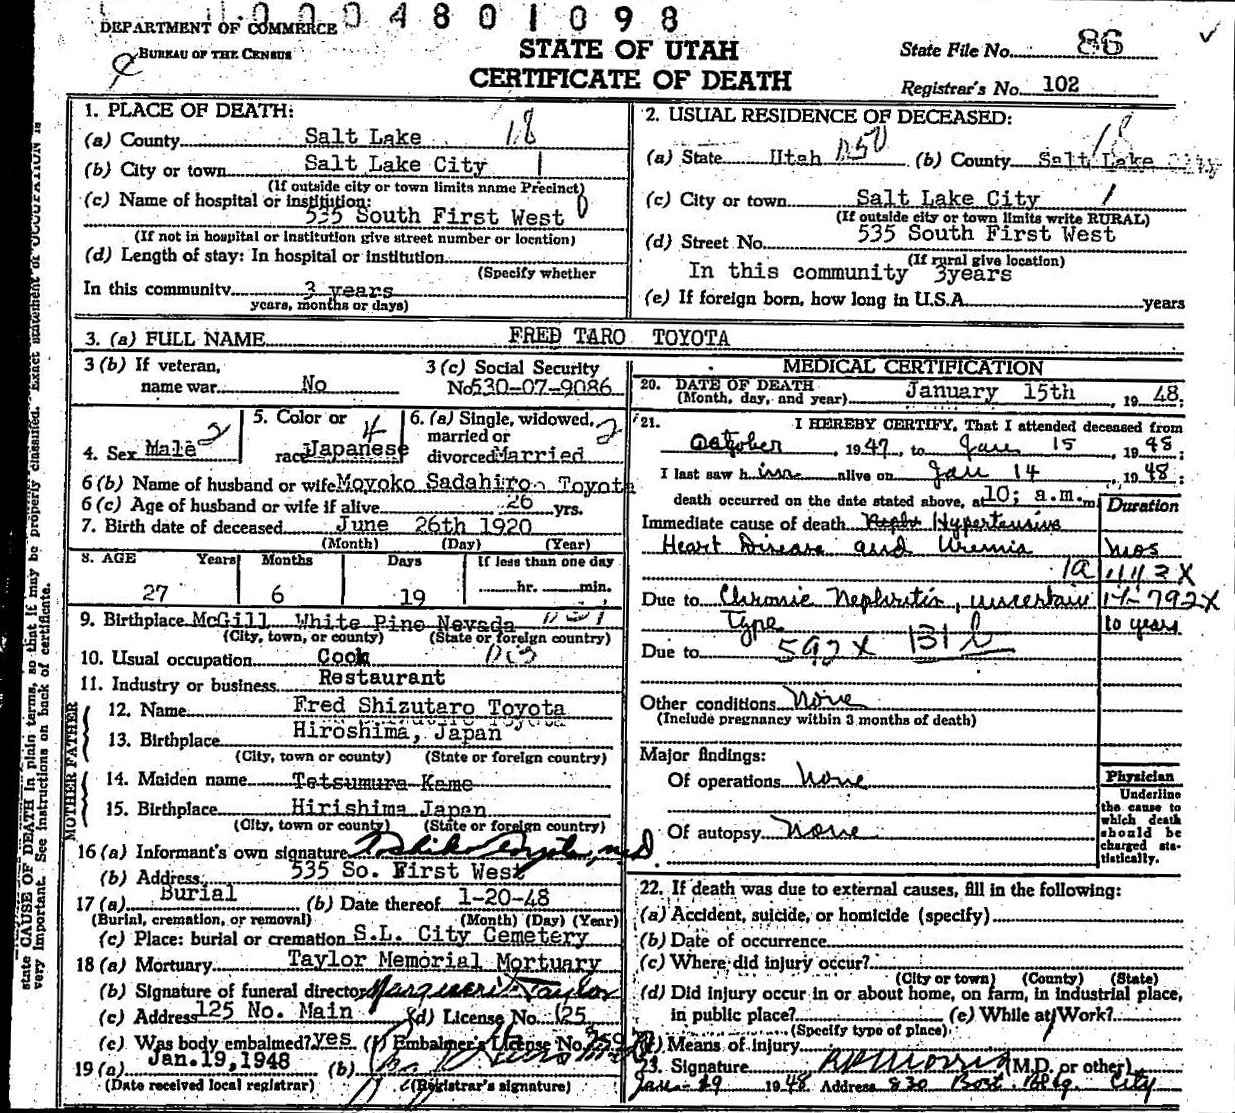 0004801098
DEPARTMENT OF COMMERCE
BUREAU OF THE CENSUS
STATE OF UTAH
CERTIFICATE OF DEATH
State File No. 86
Registrar's No. 102
1. PLACE OF DEATH:
(a) County Salt Lake 18
(b) City or town Salt Lake City 1
(If outside city or town limits name Precinct)
(c) Name of hospital or institution: 0
535 South First West
(If not in hospital or institution give street number or location)
(d) Length of stay: In hospital or institution
(Specify whether
In this community 3 years
years, months or days)
2. USUAL RESIDENCE OF DECEASED:
(a) State Utah (b) County Salt Lake City 18
(c) City or town Salt Lake City 1
(If outside city or town limits write RURAL)
(d) Street No. 535 South First West
(If rural give location)
In this community 3years
(e) If foreign born, how long in U.S.A. years
3. (a) FULL NAME FRED TARO TOYOTA
3 (b) If veteran,
name war. No
3 (c) Social Security
No 530-07-9086
4. Sex Male 2
5. Color or 4
race Japanese
6. (a) Single, widowed, 2
married or
divorced Married
6 (b) Name of husband or wife Moyoko Sadahiro Toyota
6 (c) Age of husband or wife if alive 26 yrs.
7. Birth date of deceased June 26th 1920
(Month) (Day) (Year)
8. AGE Years Months Days If less than one day
27 6 19 hr. min.
9. Birthplace McGill White Pine Nevada
(City, town, or county) (State or foreign country)
10. Usual occupation Cook
11. Industry or business Restaurant
FATHER
12. Name Fred Shizutaro Toyota
13. Birthplace Hiroshima, Japan
(City, town or county) (State or foreign country)
MOTHER
14. Maiden name Tetsumura Kame
15. Birthplace Hirishima Japan
(City, town or county) (State or foreign country)
16 (a) Informant's own signature
(b) Address 535 So. First West
17 (a) Burial (b) Date thereof 1-20-48
(Burial, cremation, or removal) (Month) (Day) (Year)
(c) Place: burial or cremation S.L. City Cemetery
18 (a) Mortuary Taylor Memorial Mortuary
(b) Signature of funeral director Marguerit Taylor
(c) Address 125 No. Main (d) License No. 125
(e) Was body embalmed? yes (f) Embalmer's License No.
19 (a) Jan. 19, 1948 (b)
(Date received local registrar) (Registrar's signature)
MEDICAL CERTIFICATION
20. DATE OF DEATH
(Month, day, and year) January 15th, 19 48;
21. I HEREBY CERTIFY, That I attended deceased from
October, 1947, to Jan 15, 1948;
I last saw him alive on Jan 14, 1948;
death occurred on the date stated above, at 10; a.m. m
Duration
Immediate cause of death Neph Hypertensive
Heart Disease and Uremia mos
1a 443X
Due to Chronic Nephritis, uncertain 14-792X
Type 10 years
Due to 592X 131 b
Other conditions None
(Include pregnancy within 3 months of death)
Major findings:
Of operations None
Of autopsy None
Physician
Underline
the cause to
which death
should be
charged sta-
tistically.
22. If death was due to external causes, fill in the following:
(a) Accident, suicide, or homicide (specify)
(b) Date of occurrence
(c) Where did injury occur?
(City or town) (County) (State)
(d) Did injury occur in or about home, on farm, in industrial place,
in public place? (e) While at Work?
(Specify type of place)
(f) Means of injury
23. Signature (M.D. or other)
Jan 19 1948 Address 830 Bost. Bldg. City